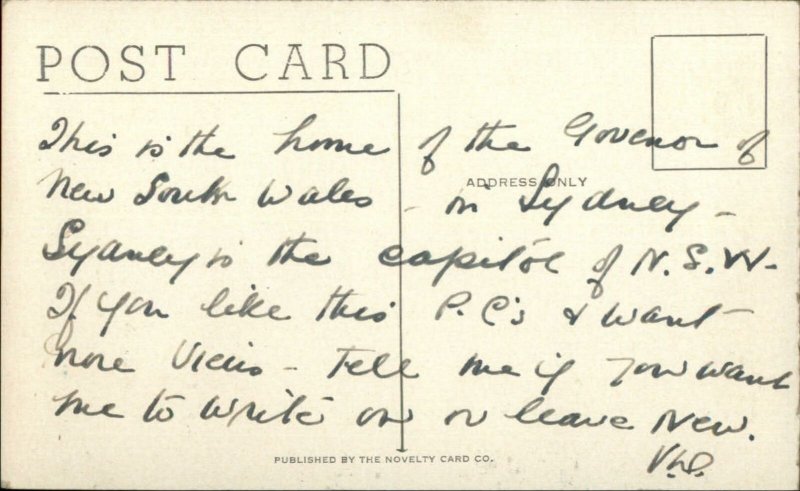 POST CARD
This is the home of the Govenor of
ADDRESS ONLY
New South Wales - in Sydney -
Sydney is the capitol of N.S.W-
If you like this P.C's & want
more Views - Tell me if you want
me to write on or leave New.
PUBLISHED BY THE NOVELTY CARD CO.